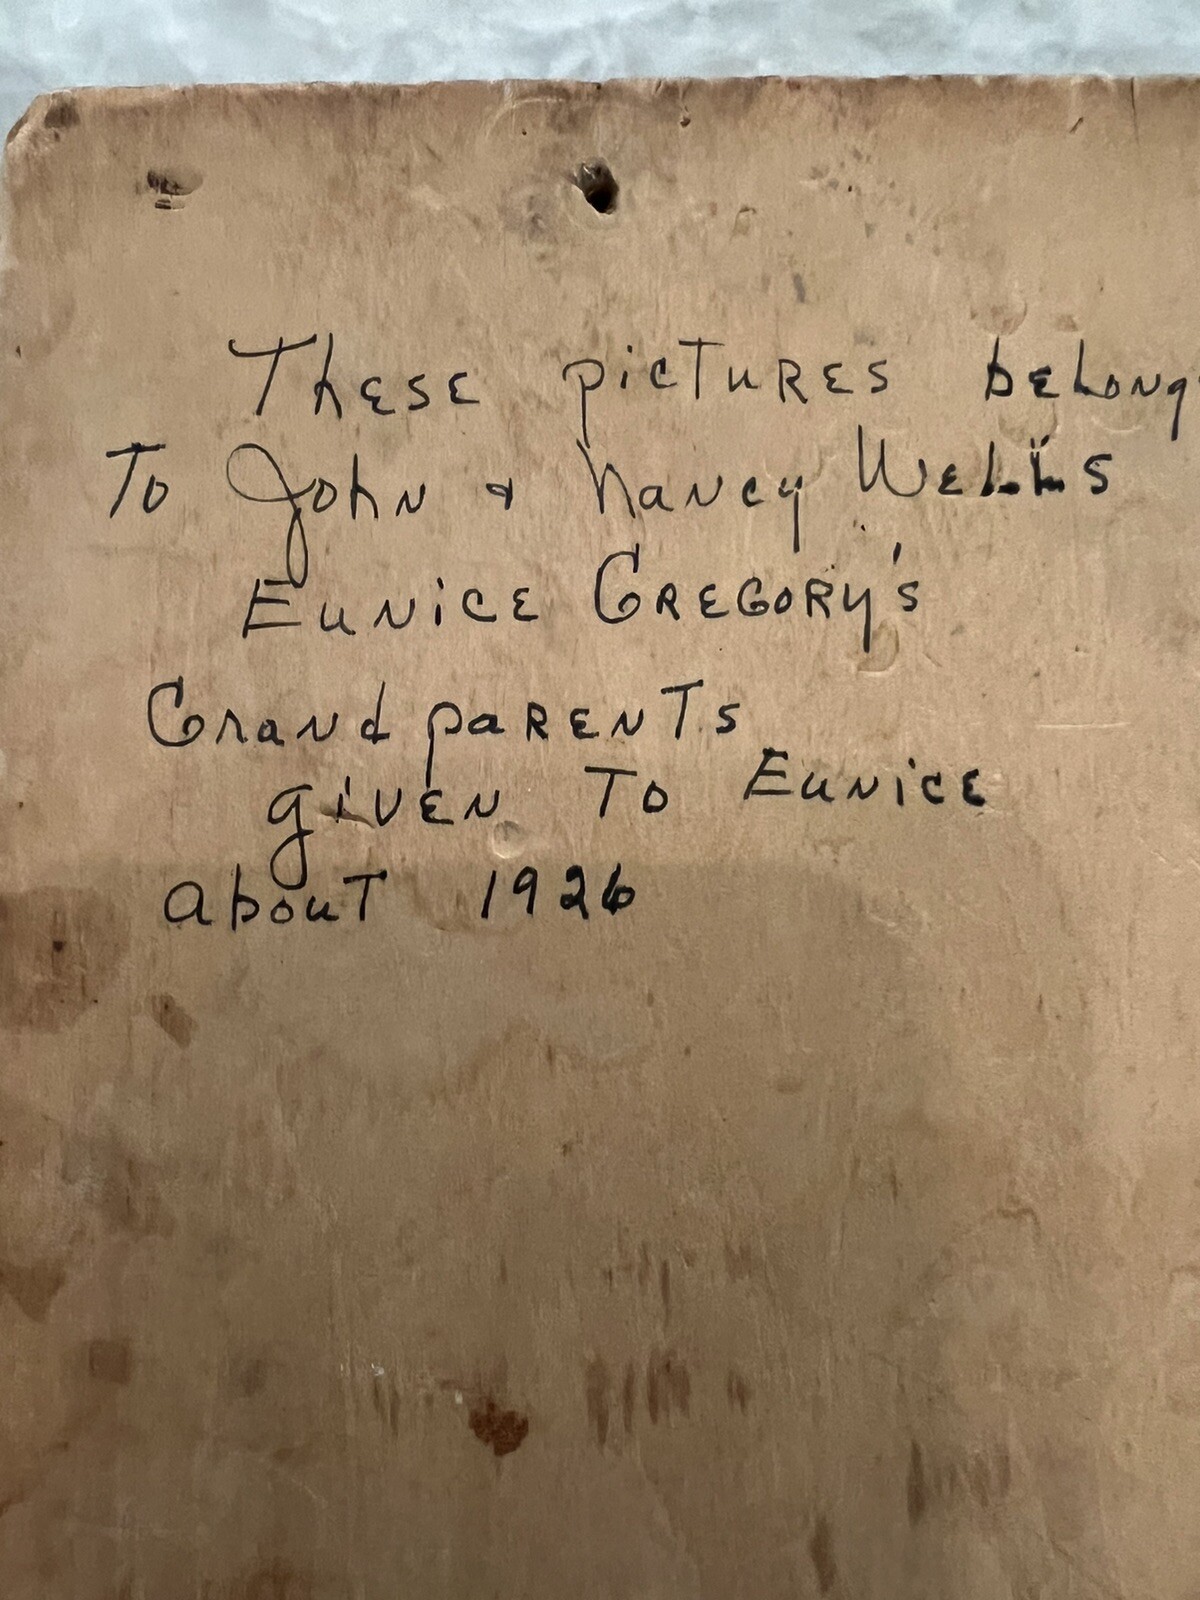 These pictures belong
To John & Nancy Wells
Eunice Gregory's
Grand parents
given To Eunice
about 1926